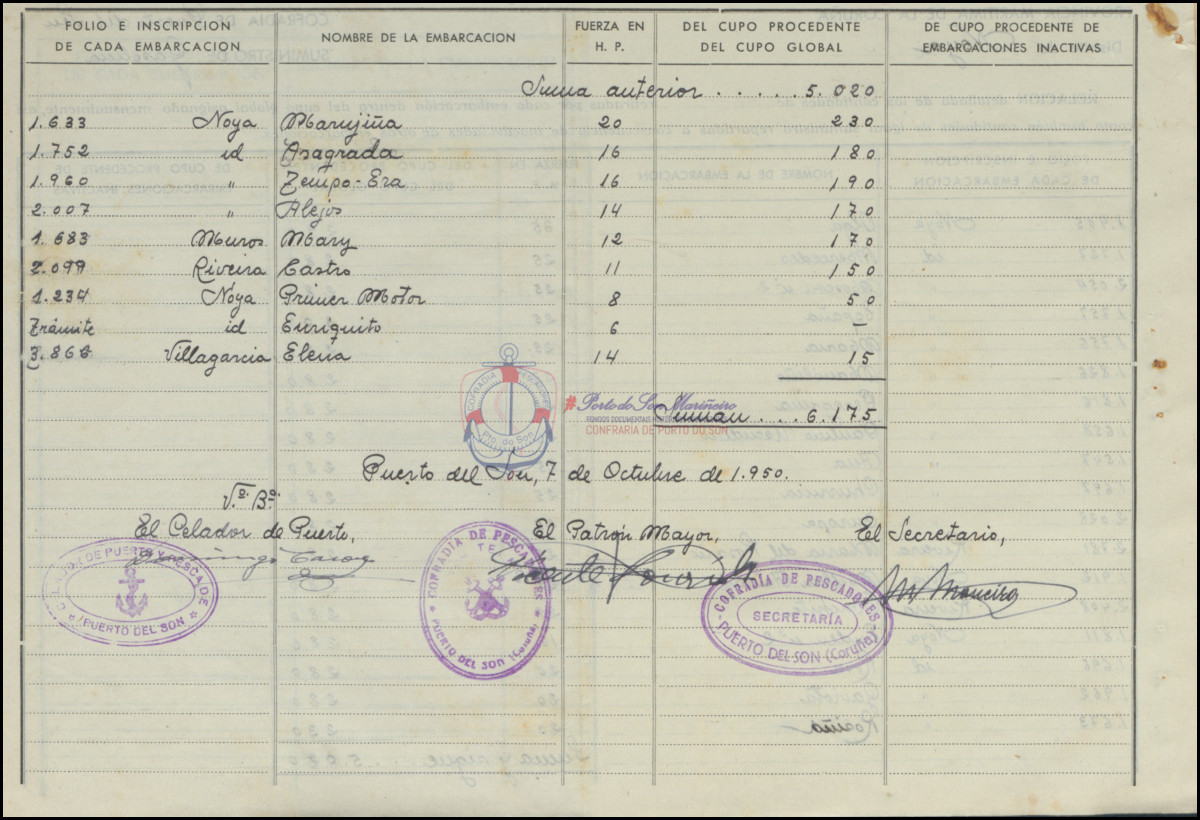 FOLIO E INSCRIPCION DE CADA EMBARCACION
NOMBRE DE LA EMBARCACION
FUERZA EN H. P.
DEL CUPO PROCEDENTE DEL CUPO GLOBAL
DE CUPO PROCEDENTE DE EMBARCACIONES INACTIVAS
Suma anterior . . . . . 5.020
1.633 Noya Marujiña 20 230
1.752 id Asagrada 16 180
1.960 " Tempo-Era 16 190
2.007 " Alejos 14 170
1.683 Muros Mary 12 170
2.099 Riveira Castro 11 150
1.234 Noya Primer Motor 8 50
Trámite id Enriquito 6 –
3.866 Villagarcia Elena 14 15
Suman . . . 6.175
COFRADIA PESCADORES
Pto. do Son
#Porto do Son Mariñeiro
FONDOS DOCUMENTAIS
CONFRARÍA DE PORTO DO SON
Puerto del Son, 7 de Octubre de 1.950.
Vº. Bº.
El Celador de Puerto,
El Patrón Mayor,
El Secretario,
DE PUERTO Y PESCA DE
PUERTO DEL SON
COFRADÍA DE PESCADORES
PUERTO DEL SON (Coruña)
COFRADÍA DE PESCADORES
SECRETARÍA
PUERTO DEL SON (Coruña)